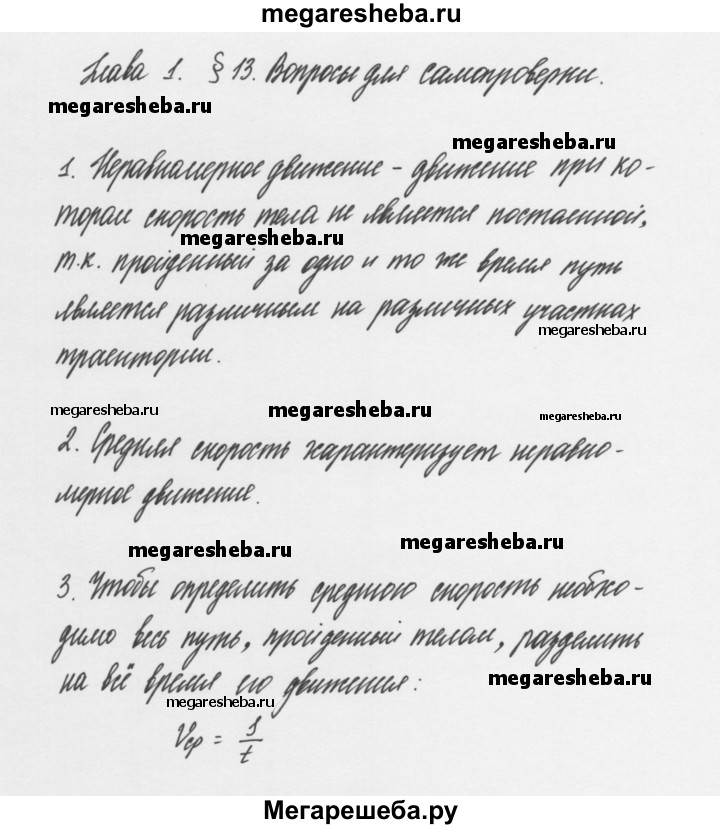 megaresheba.ru
Глава 1. § 13. Вопросы для самопроверки.
megaresheba.ru
megaresheba.ru
1. Неравномерное движение - движение при ко-
тором скорость тела не является постоянной,
megaresheba.ru
т.к. пройденный за одно и то же время путь
является различным на различных участках
megaresheba.ru
траектории.
megaresheba.ru megaresheba.ru megaresheba.ru
2. Средняя скорость характеризует неравно-
мерное движение.
megaresheba.ru megaresheba.ru
3. Чтобы определить среднюю скорость необхо-
димо весь путь, пройденный телом, разделить
на всё время его движения:
megaresheba.ru
megaresheba.ru
Vср = S/t
Мегарешеба.ру